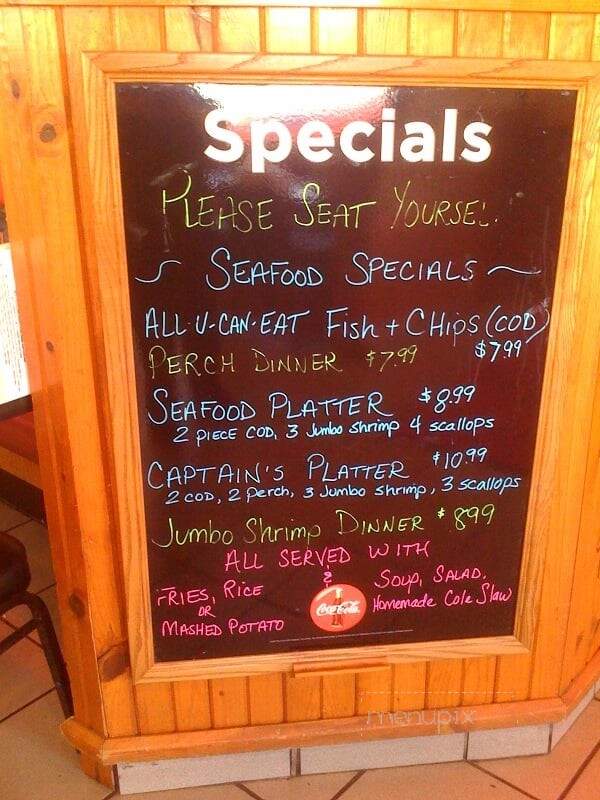 Specials
PLEASE SEAT YOURSEL.
SEAFOOD SPECIALS
ALL-U-CAN-EAT Fish + CHips (COD)
$7.99
PERCH DINNER $7.99
SEAFOOD PLATTER $8.99
2 PIECE COD, 3 Jumbo Shrimp 4 scallops
CAPTAIN'S PLATTER $10.99
2 COD, 2 Perch, 3 Jumbo shrimp, 3 scallops
Jumbo Shrimp DINNER $899
ALL SERVED WITH
FRIES, RICE
OR
MASHED POTATO
&
Soup, SALAD,
Homemade Cole Slaw
Coca-Cola
menupix